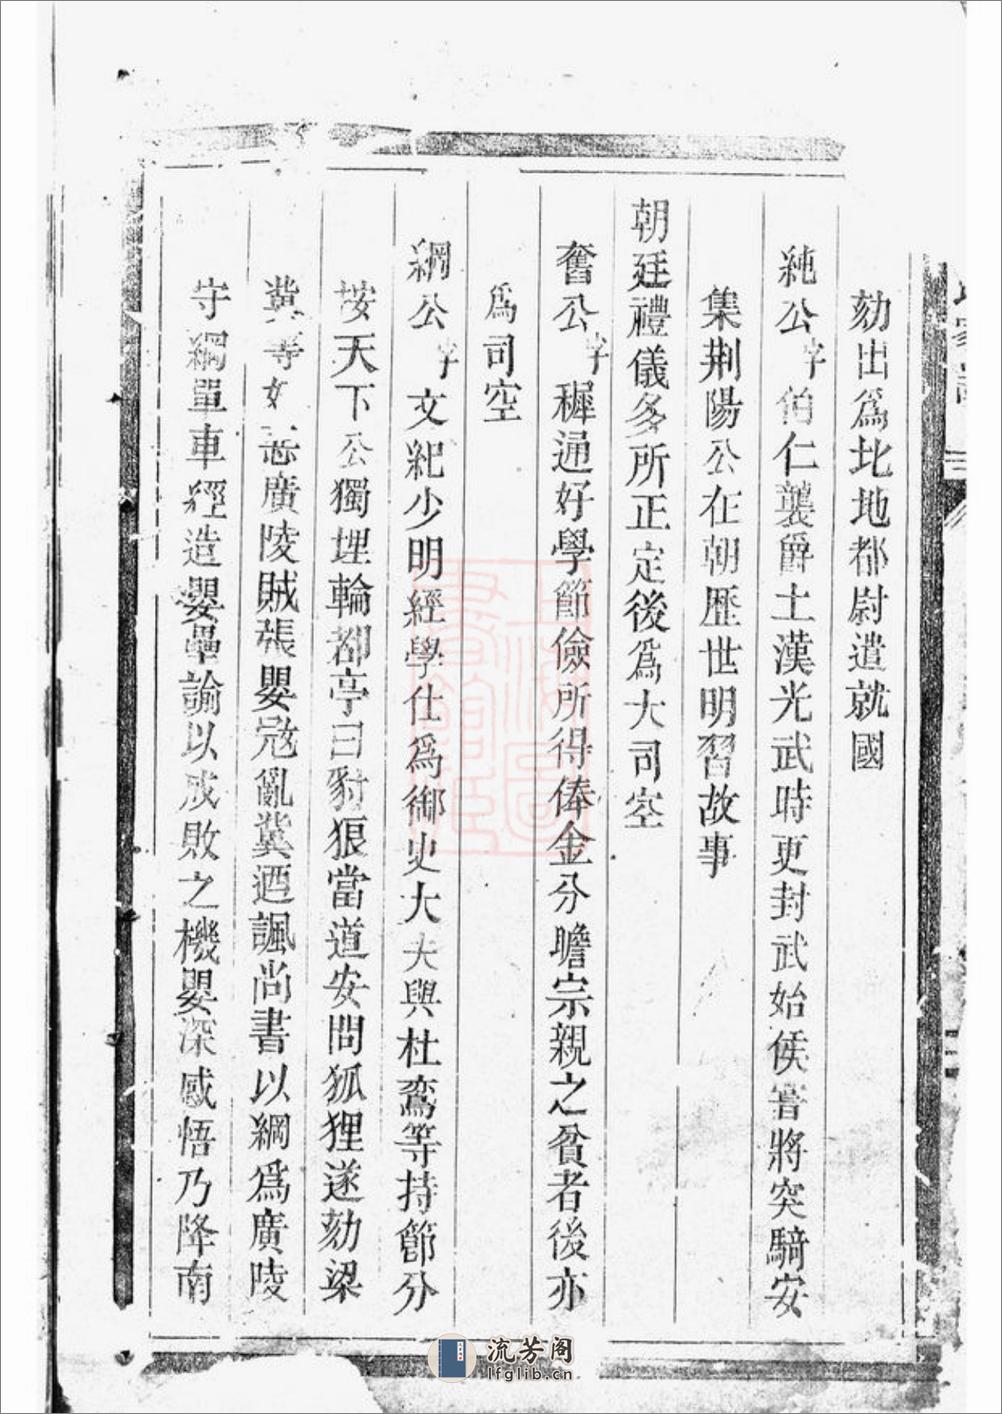 劾出爲北地都尉遣就國
純公字伯仁襲爵土漢光武時更封武始侯嘗將突騎安
集荆陽公在朝歷世明習故事
朝廷禮儀多所正定後爲大司空
奮公字穉通好學節儉所得俸金分贍宗親之貧者後亦
爲司空
綱公字文紀少明經學仕爲御史大夫與杜喬等持節分
按天下公獨埋輪都亭曰豺狼當道安問狐狸遂劾梁
冀等奸惡廣陵賊張嬰寇亂冀迺諷尚書以綱爲廣陵
守綱單車徑造嬰壘諭以成敗之機嬰深感悟乃降南
流芳阁
lfglib.cn